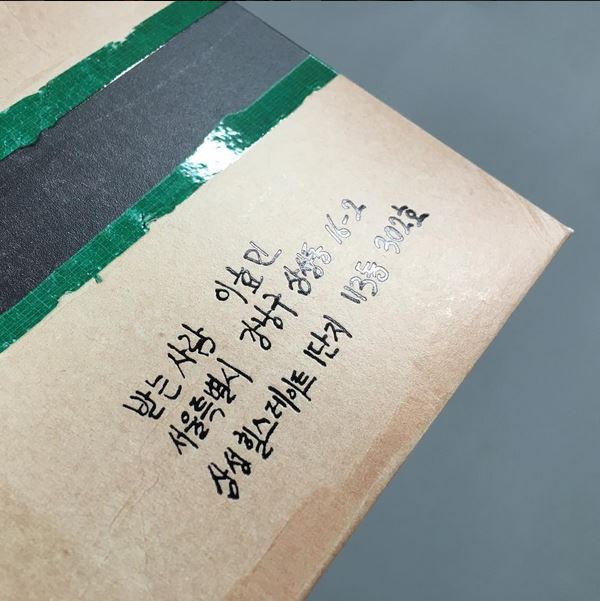 받는 사람 이효민
서울특별시 강남구 삼성동 16-2
삼성힐스테이트 1단지 113동 302호